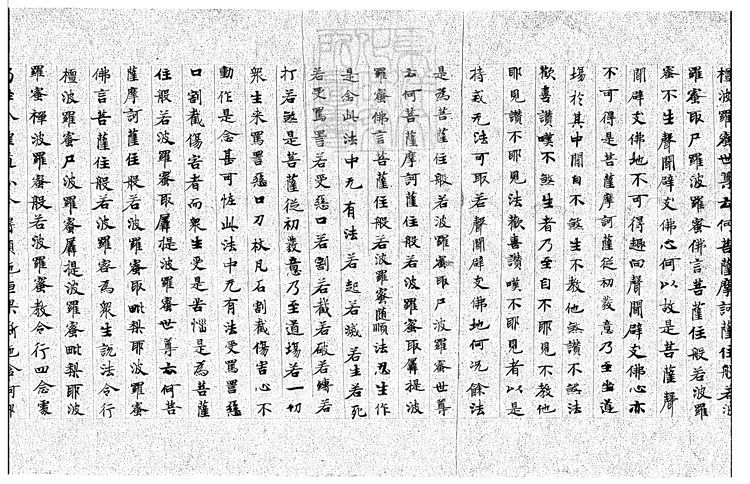 檀波羅蜜世尊云何菩薩摩訶薩住般若波
羅蜜取尸羅波羅蜜佛言菩薩住般若波羅
蜜不生聲聞辟支佛心何以故是菩薩聲
聞辟支佛地不可得趣向聲聞辟支佛心亦
不可得是菩薩摩訶薩從初發意乃至坐道
場於其中間自不煞生不教他煞讚不煞法
歡喜讚嘆不煞生者乃至自不耶見不教他
耶見讚不耶見法歡喜讚嘆不耶見者以是
持戒无法可取若聲聞辟支佛地何况餘法
是為菩薩住般若波羅蜜取尸波羅蜜世尊
云何菩薩摩訶薩住般若波羅蜜取羼提波
羅蜜佛言菩薩住般若波羅蜜隨順法忍生作
是念此法中无有法若起若滅若生若死
若受罵詈若受惡口若割若截若破若縛若
打若煞是菩薩從初發意乃至道場若一切
衆生来罵詈惡口刀杖凡石割截傷害心不
動作是念甚可恠此法中无有法受罵詈惡
口割截傷害者而衆生受是苦惱是為菩薩
住般若波羅蜜取羼提波羅蜜世尊云何菩
薩摩訶薩住般若波羅蜜取毗梨耶波羅蜜
佛言菩薩住般若波羅蜜為衆生說法令行
檀波羅蜜尸波羅蜜羼提波羅蜜毗梨耶波
羅蜜禪波羅蜜般若波羅蜜教令行四念處